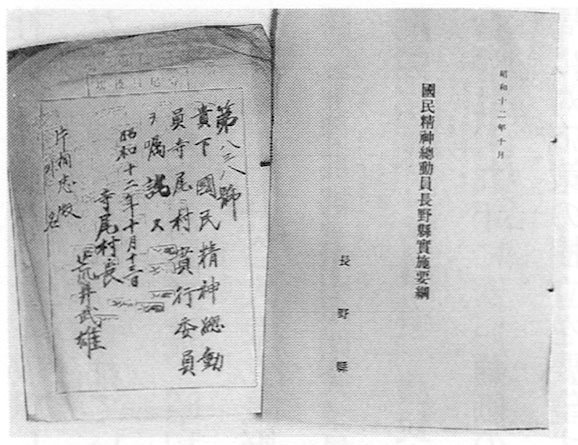 昭和十二年十月
國民精神總動員長野縣實施要綱
長野縣
第八三八號
貴下國民精神總動
員寺尾村實行委員
ヲ嘱託ス
昭和十二年十月十三日
寺尾村長
荒井武雄
片桐忠殿